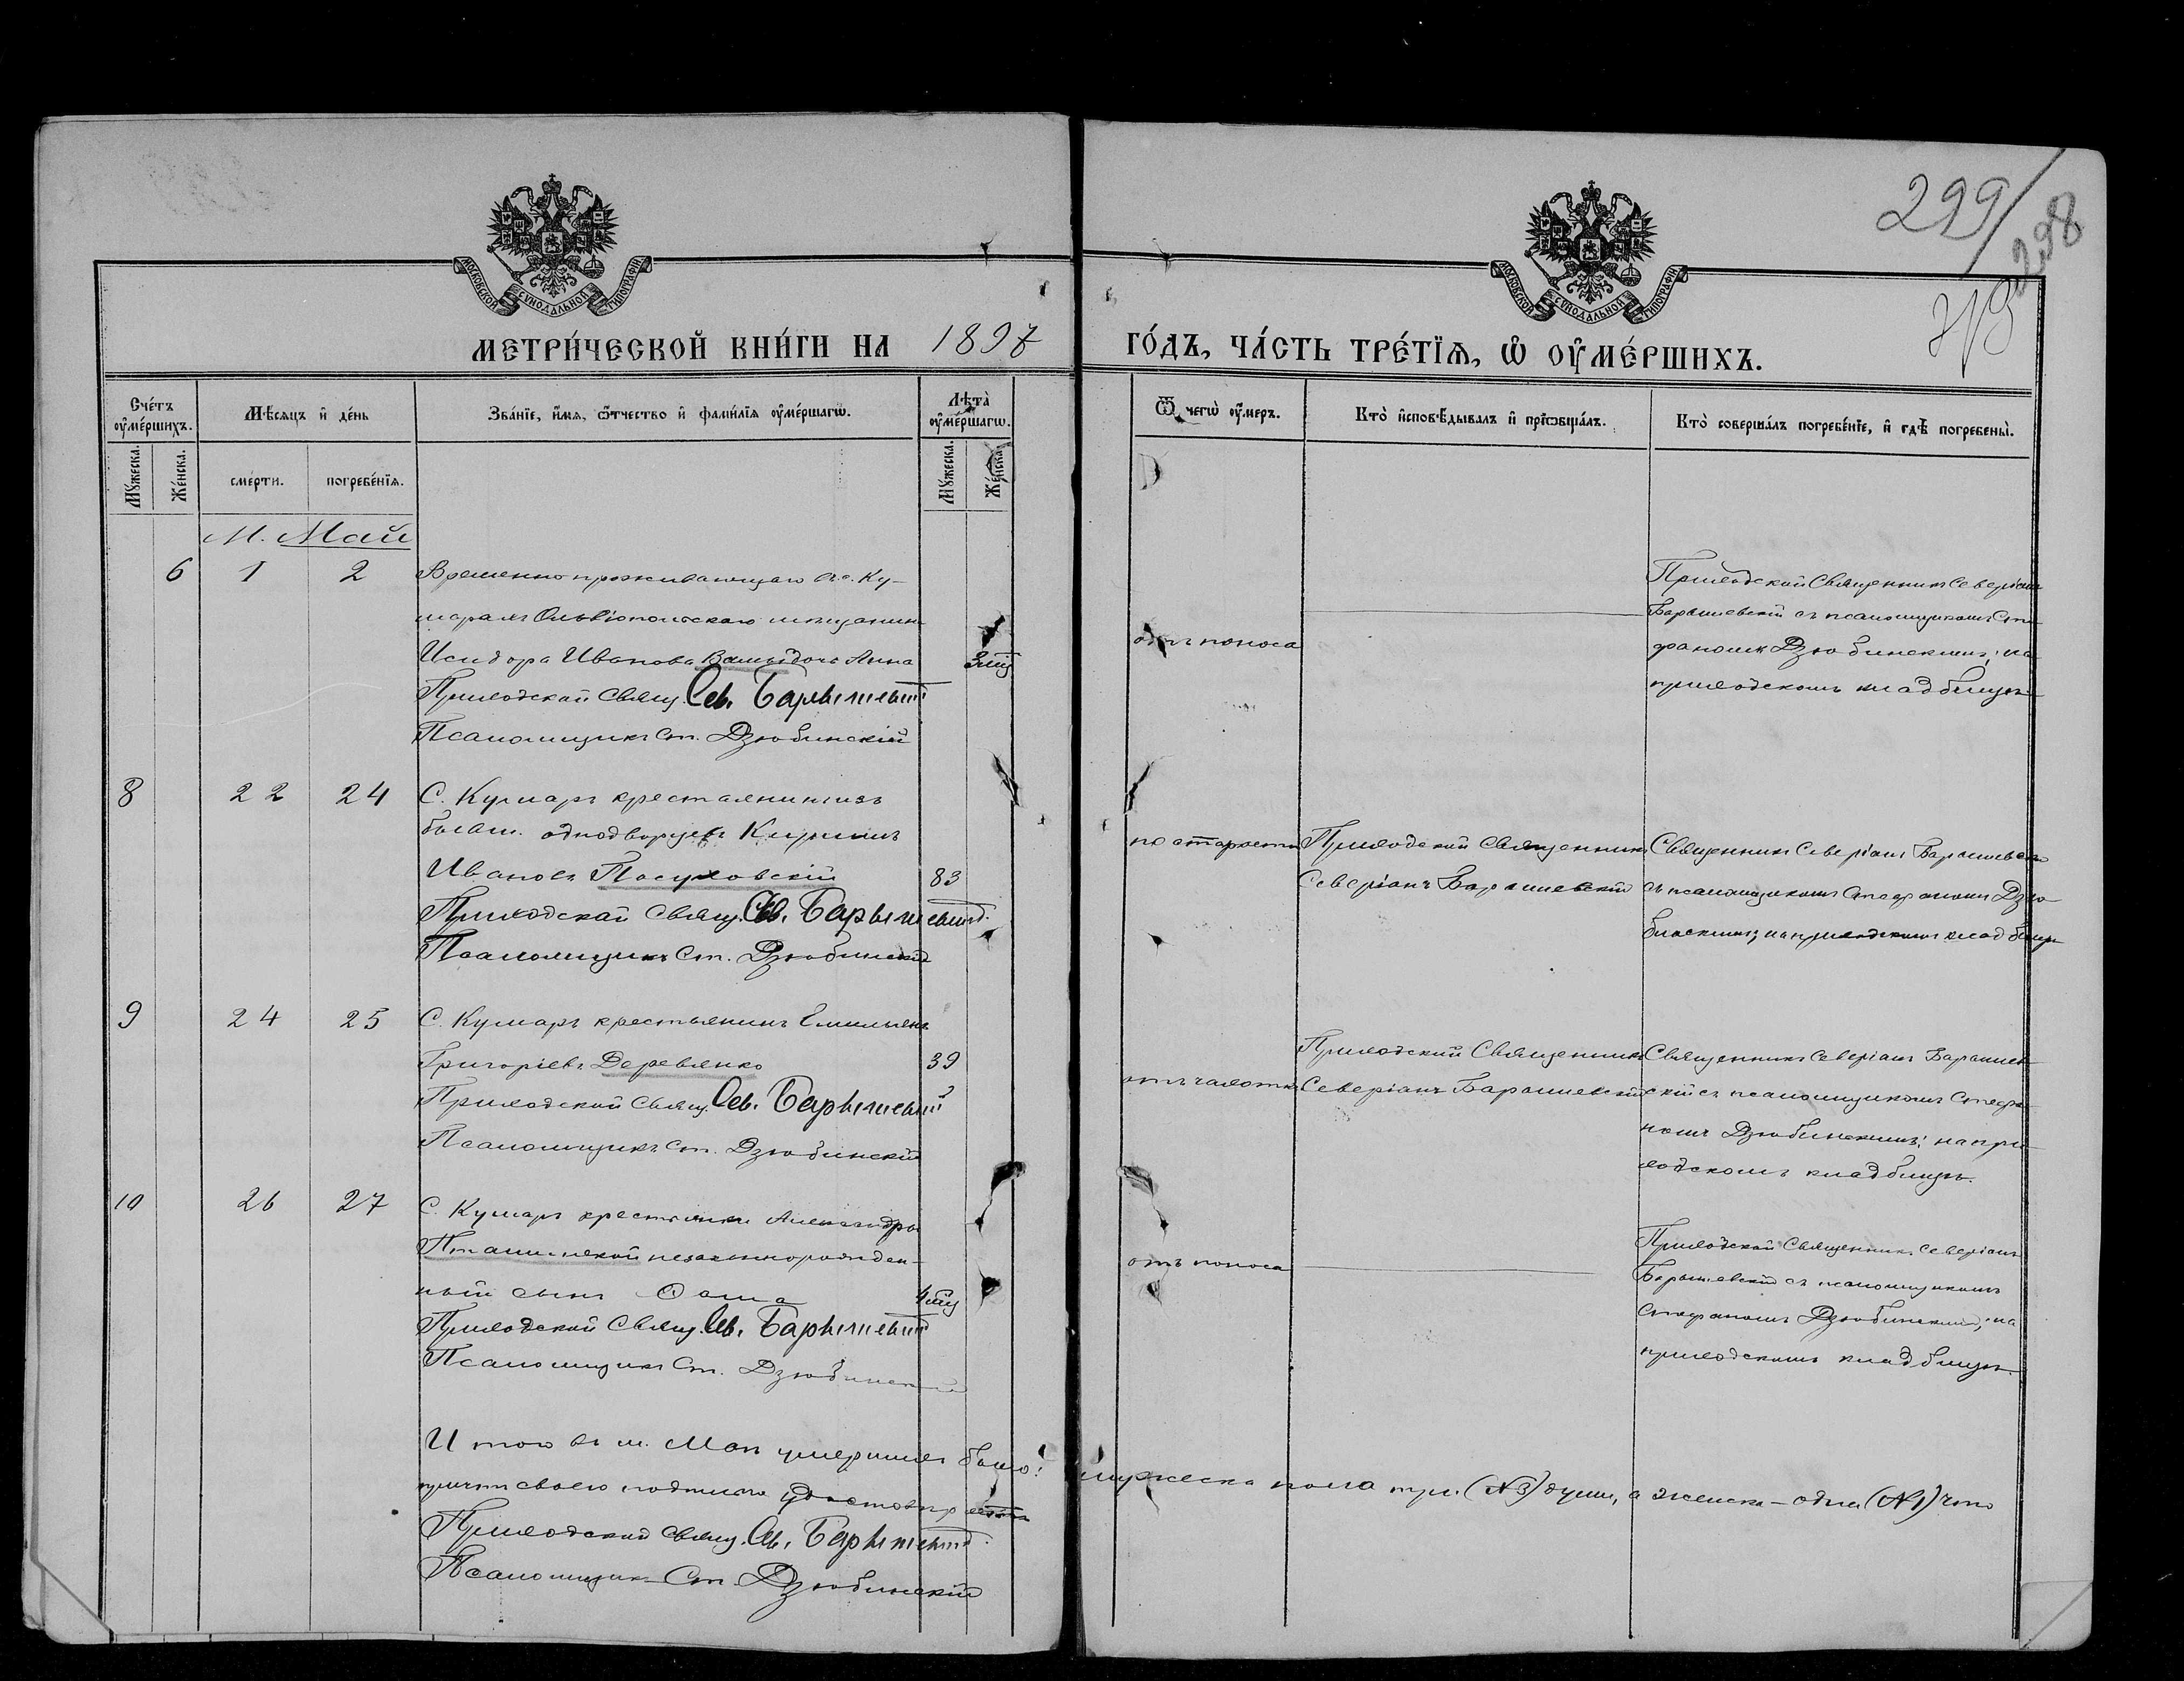 299/
298
МОСКОВСКОЙ СѴНОДАЛЬНОЙ ТИПОГРАФІИ
МОСКОВСКОЙ СѴНОДАЛЬНОЙ ТИПОГРАФІИ
МЕТРИ́ЧЕСКОЙ КНИ́ГИ НА 1897
ГО́ДЪ, ЧА́СТЬ ТРЕ́ТЇѦ, Ѡ҆ ОУ҆МЕ́РШИХЪ.
Сче́тъ оу҆ме́ршихъ.
Мѣсяцъ и҆ де́нь
Зва́нїе, и҆́мя, ѻ҆́тчество и҆ фами́лїя оу҆ме́ршагѡ.
Лѣта̀ оу҆ме́ршагѡ.
Ѿ чегѡ̀ оу҆́меръ.
Кто̀ и҆сповѣ́дывалъ и҆ прїѡбща́лъ.
Кто̀ соверша́лъ погребе́нїе, и҆ гдѣ̀ погребены̀.
Мꙋ́жеска.
Же́нска.
сме́рти.
погребе́нїя.
Мꙋ́жеска.
Же́нска.
М. Май
6 1 2 Временно проживающаго въ с. Ку-
марахъ Ольвіопольскаго мѣщанина
Исидора Иванова дочь Анна
Приходской Свящ. Сев. Барышевскій
Псаломщикъ Ст. Дзюбинскій
отъ поноса
Приходской Священникъ Северіанъ
Барышевскій съ псаломщикомъ Сте-
фаномъ Дзюбинскимъ; на
приходскомъ кладбищѣ
8 22 24 С. Кумаръ крестьянинъ изъ
бывш. однодворцевъ Кириллъ
Ивановъ Посуховскій 83
Приходской Свящ. Сев. Барышевскій
Псаломщикъ Ст. Дзюбинскій
по старости
Приходской Священникъ
Северіанъ Барышевскій
Священникъ Северіанъ Барышевскій
съ псаломщикомъ Стефаномъ Дзю-
бинскимъ; на приходскомъ кладбищѣ
9 24 25 С. Кумаръ крестьянинъ Емиліянъ
Григоріевъ Деревянко 39
Приходской Свящ. Сев. Барышевскій
Псаломщикъ Ст. Дзюбинскій
отъ чахотки
Приходский Священникъ
Северіанъ Барышевскій
Священникъ Северіанъ Барышев-
скій съ псаломщикомъ Стефа-
номъ Дзюбинскимъ; на при-
ходскомъ кладбищѣ.
10 26 27 С. Кумаръ крестьянки Александры
незаконнорожден-
ный сынъ Ѳома
Приходской Свящ. Сев. Барышевскій
Псаломщикъ Ст. Дзюбинскій
отъ поноса
Приходской Священникъ Северіанъ
Барышевскій съ псаломщикомъ
Стефаномъ Дзюбинскимъ; на
приходскомъ кладбищѣ.
Итого въ м. Маѣ умершихъ было: мужеска пола три (№3) души, а женска – одна (№1) что
причтъ своею подписью удостовѣряетъ
Приходской Свящ. Сев. Барышевскій
Псаломщикъ Ст. Дзюбинскій